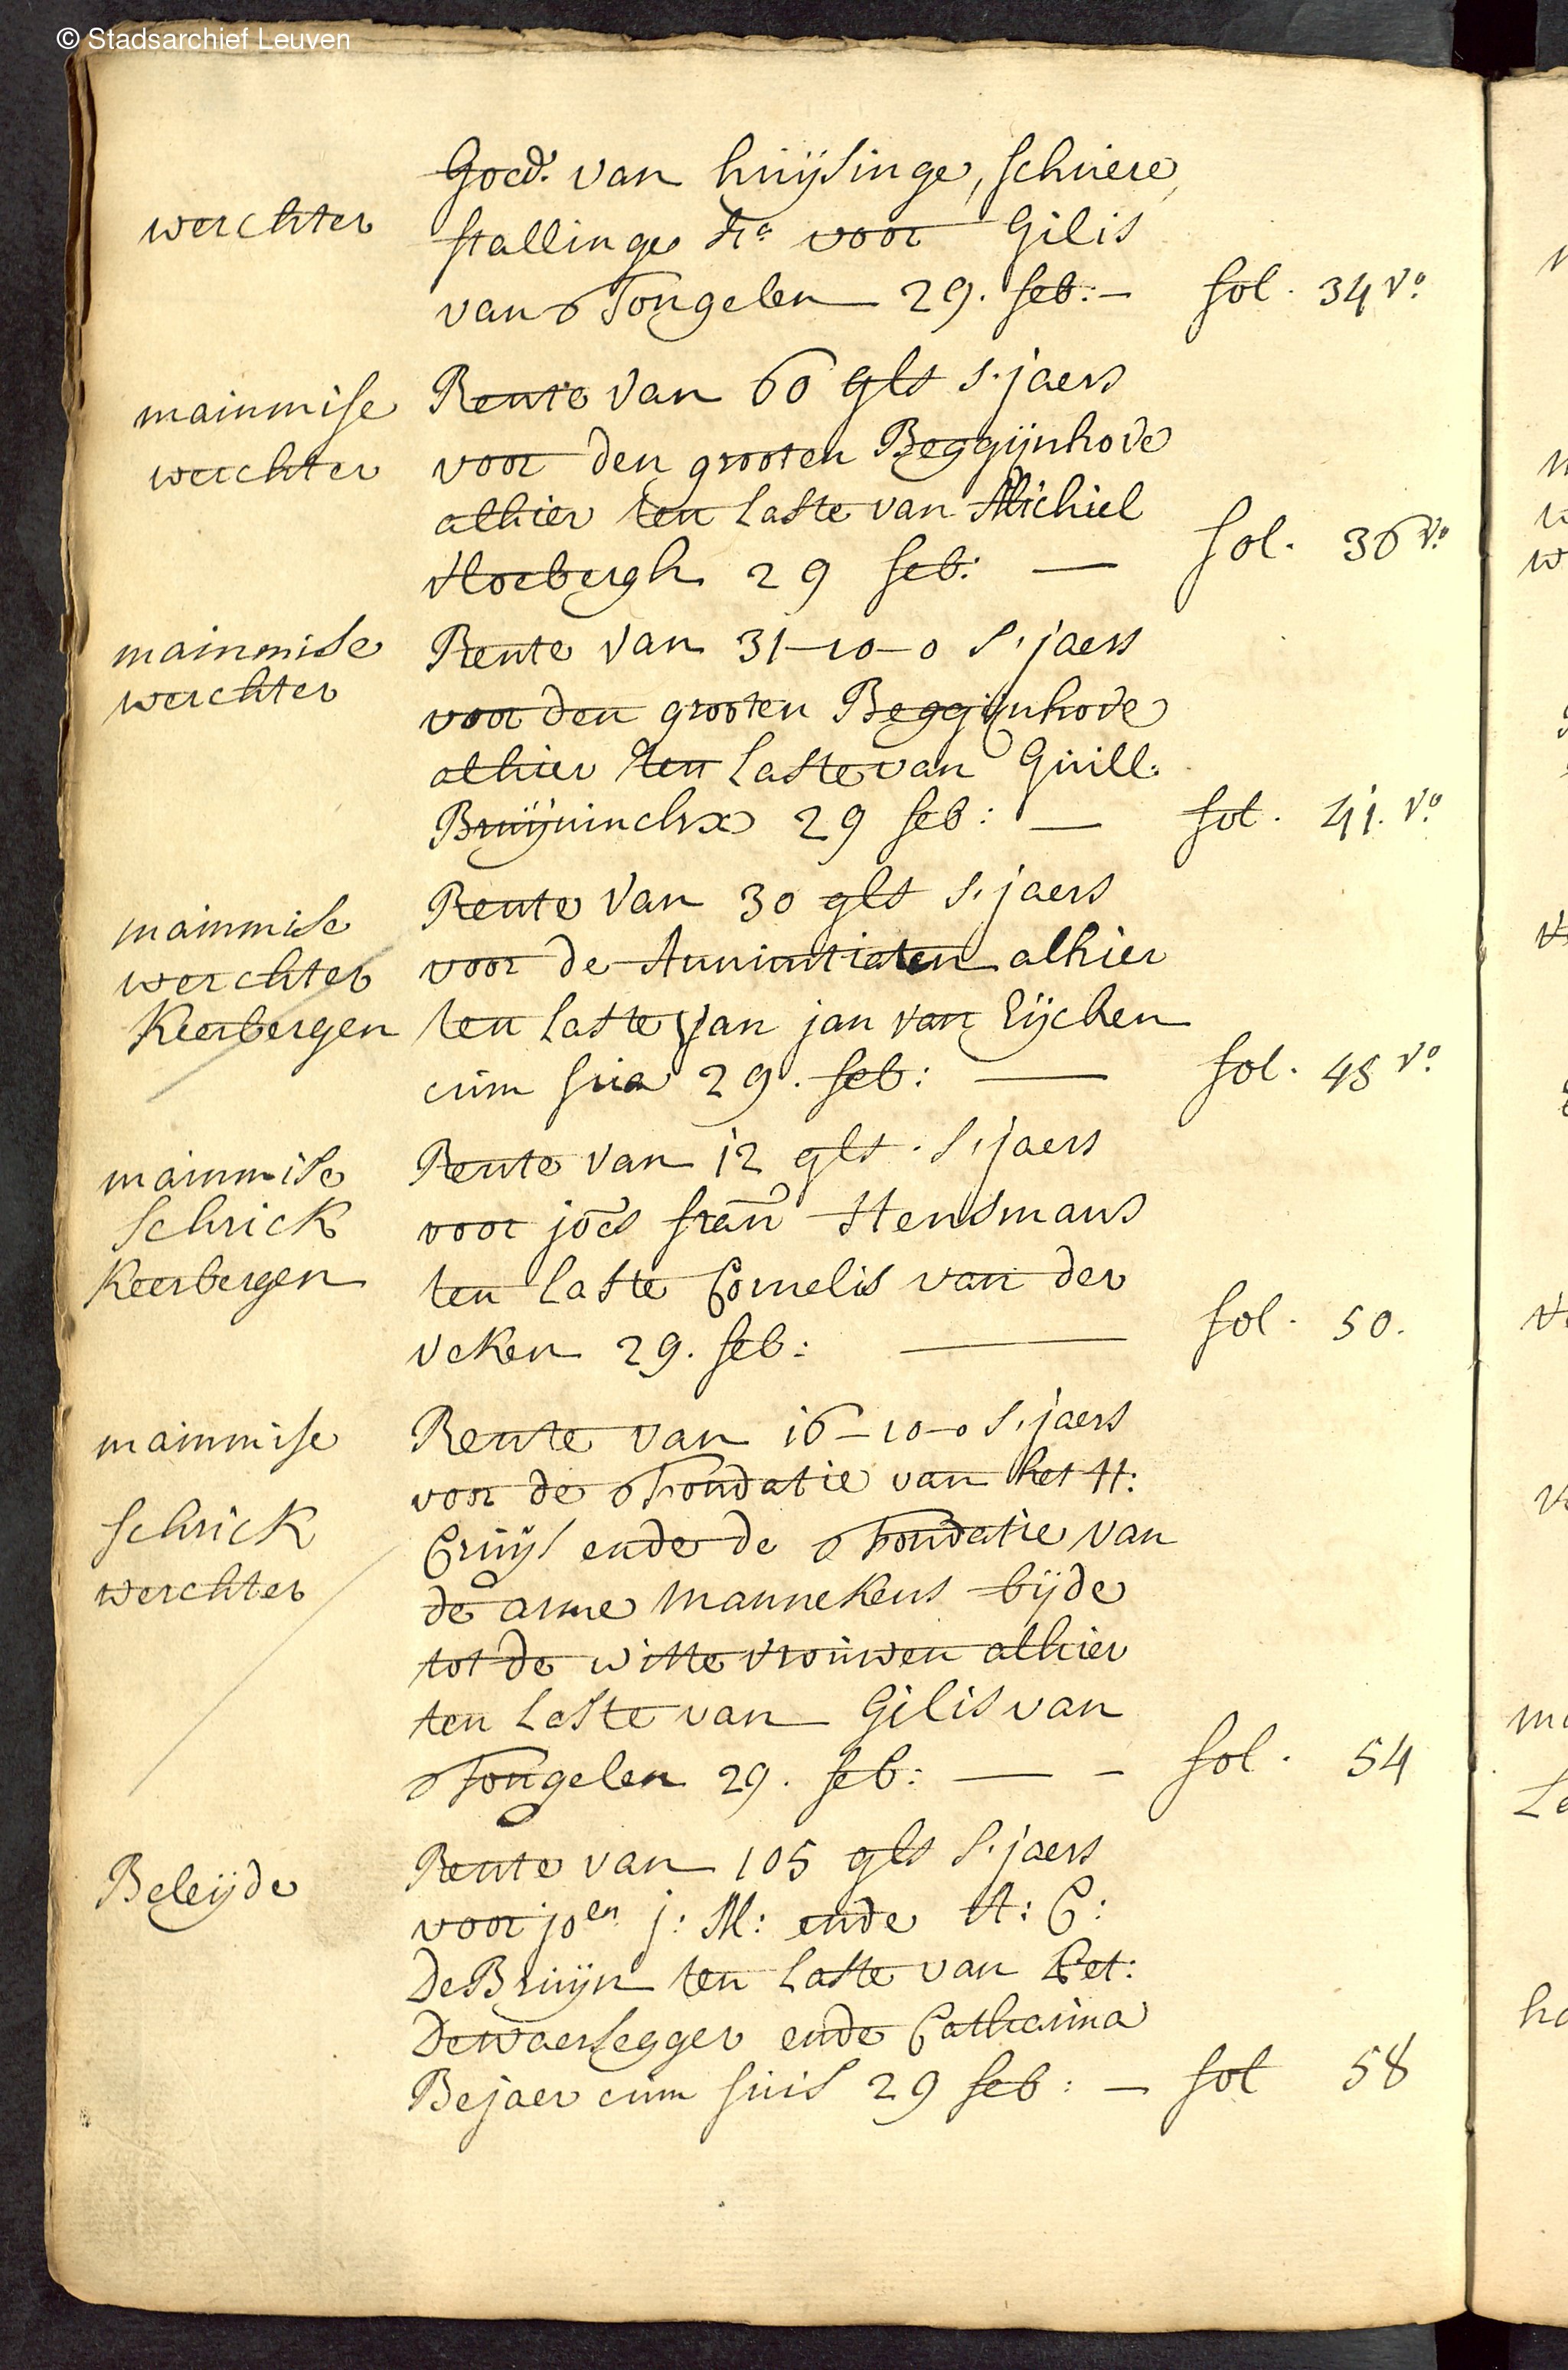 © Stadsarchief Leuven
Goed. van huijsinge, schuere,
werchter
stallinge &a voor Gilis
van Tongelen 29. feb: – fol. 34 vo.
mainmise Rente van 60 gls s.jaers
werchter voor den grooten Beggijnhove
alhier ten laste van Michiel
Hoebergh 29 feb: — fol. 36 vo.
mainmise Rente van 31–10–0 s.jaers
werchter voor den grooten Beggijnhove
alhier ten laste van Guill.
Bruijninckx 29 feb: — fol. 41. vo
mainmise Rente van 30 gls s.jaers
werchter voor de Annuntiaten alhier
Keerbergen ten laste van jan van Eijcken
cum sua 29. feb: — fol. 48 vo.
mainmise Rente van 12 gls. s.jaers
schrick voor joes fran Hensmans
Keerbergen ten laste Cornelis van der
veken 29. feb: — fol. 50.
mainmise Rente van 16–10–0 s.jaers
voor de Fondatie van het H:
schrick Cruijs ende de Fondatie van
werchter de arme mannekens bijde
tot de witte vrouwen alhier
ten laste van Gilis van
Tongelen 29. feb: — – fol. 54
Beleijde Rente van 105 gls s.jaers
voor joen j: M: ende A: C:
De Bruijn ten laste van Pet:
Dewaersegger ende Catharina
Bejaer cum suis 29 feb: – fol 58